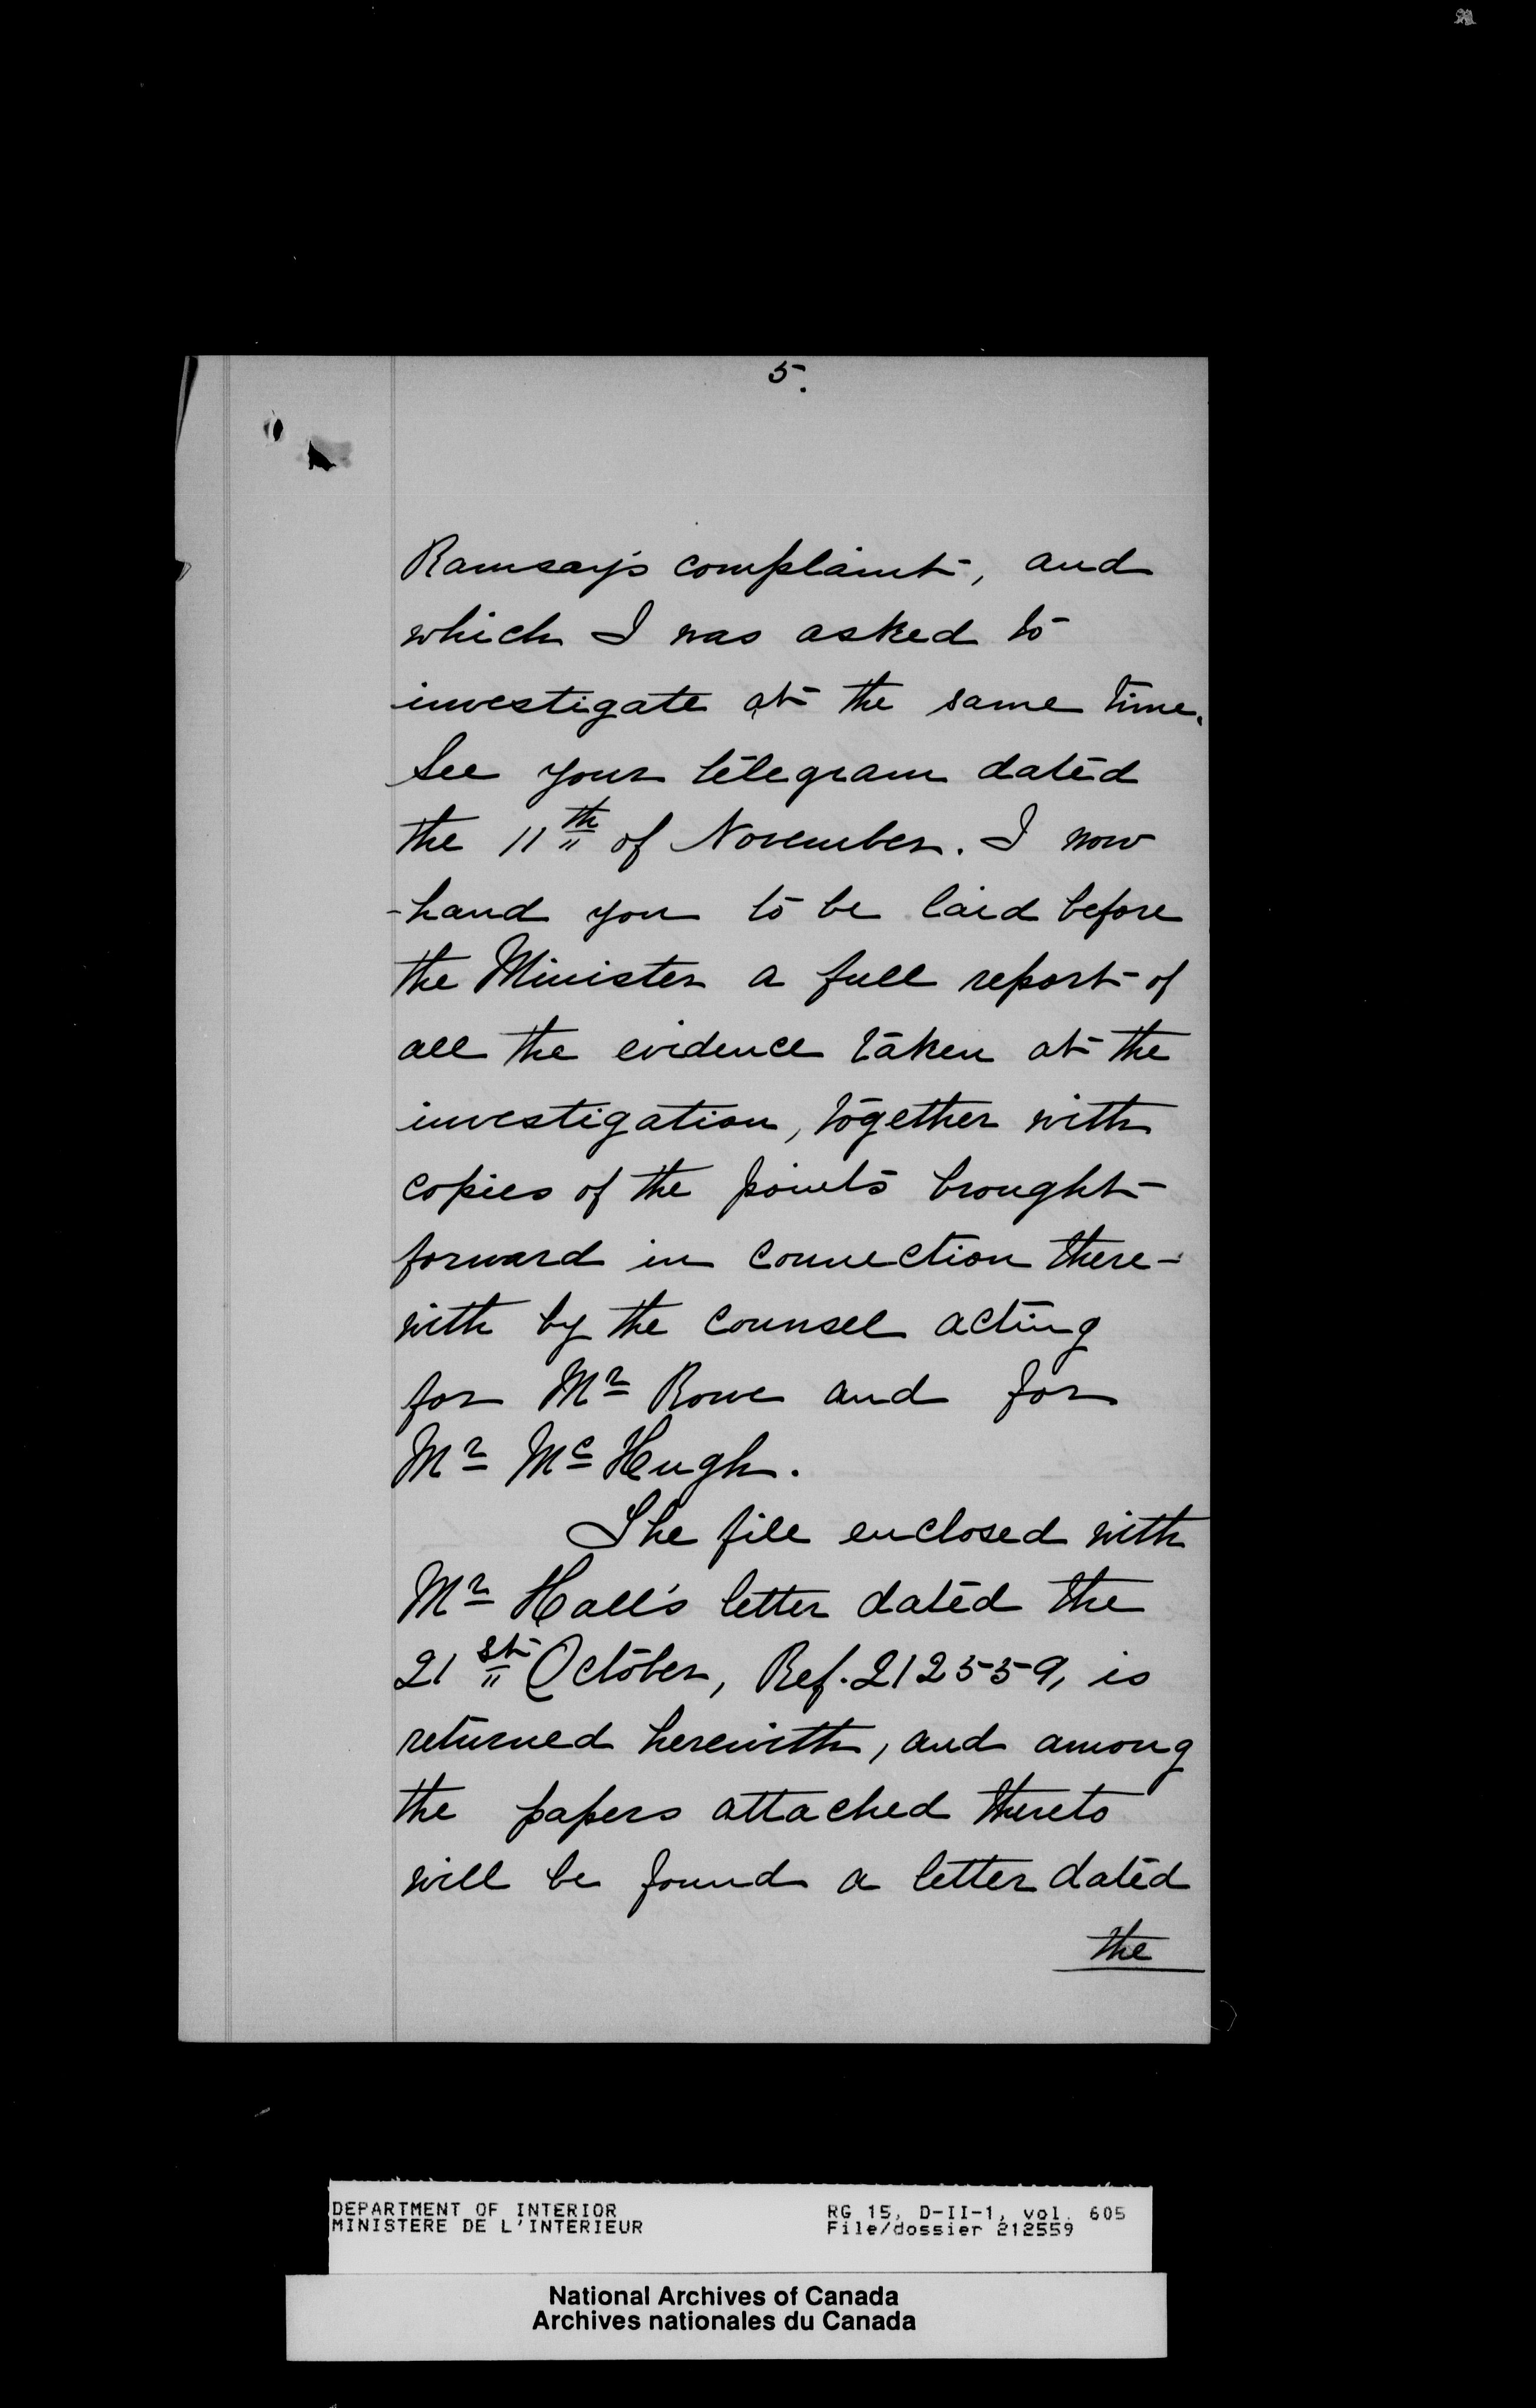 5.
Ramsay's complaint, and
which I was asked to
investigate at the same time.
See your telegram dated
the 11th of November. I now
hand you to be laid before
the Minister a full report of
all the evidence taken at the
investigation, together with
copies of the points brought
forward in connection there-
with by the counsel acting
for Mr Rowe and for
Mr McHugh.
The file enclosed with
Mr Hall's letter dated the
21st October, Ref. 212559, is
returned herewith, and among
the papers attached thereto
will be found a letter dated
the
DEPARTMENT OF INTERIOR
MINISTERE DE L'INTERIEUR
RG 15, D-II-1, vol. 605
File/dossier 212559
National Archives of Canada
Archives nationales du Canada